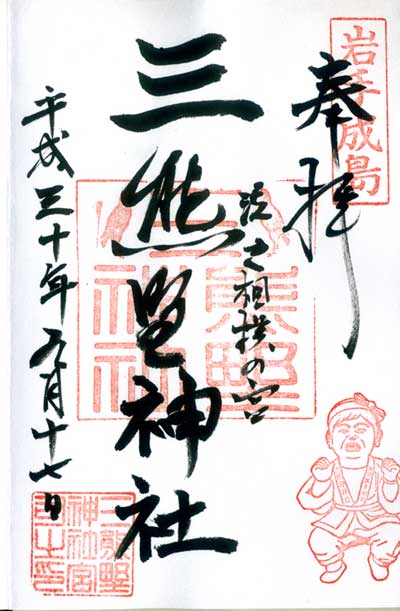 岩手成島
奉拝
泣き相撲の宮
三熊野神社
平成三十年五月十七日
三熊野
神社宮
司之印